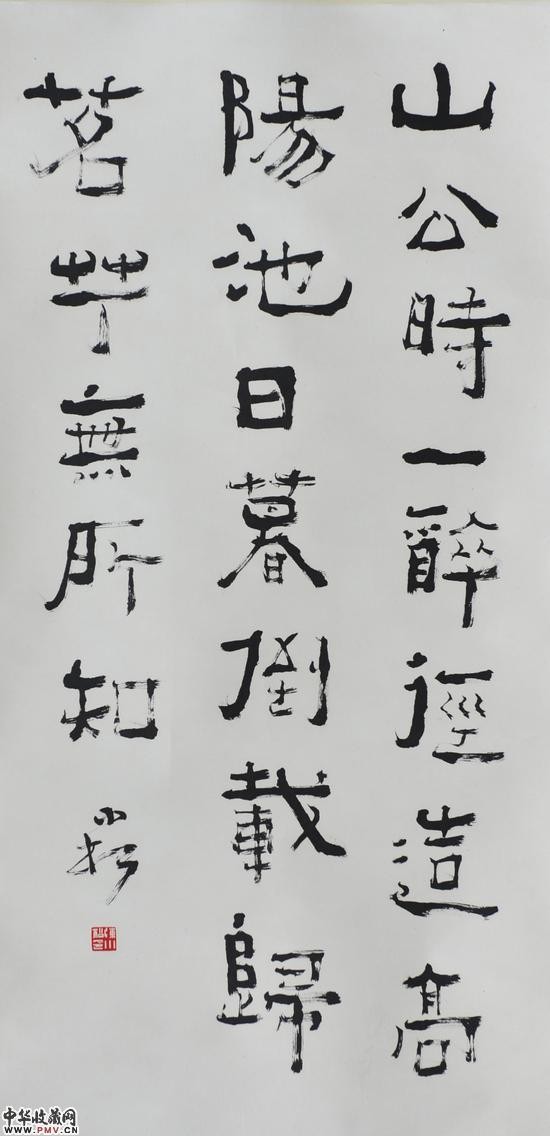 山公時一醉徑造高
陽池日暮倒載歸
茗艼無所知
中华收藏网
WWW.PMV.CN